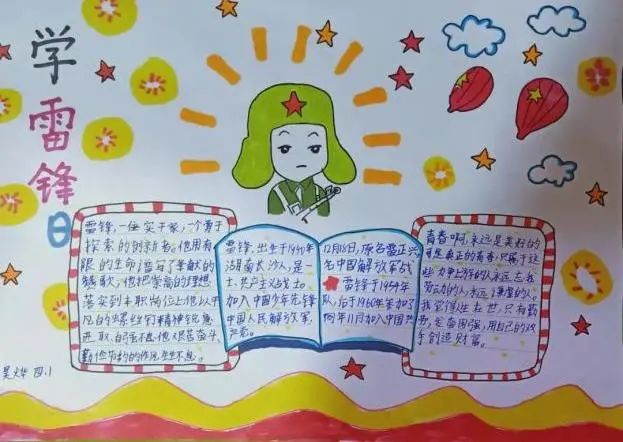 学
雷
锋
日
雷锋,一位实干家,一个勇于
探索的创新者。他用有
限的生命谱写了奉献的
赞歌,他把崇高的理想
落实到本职岗位上他以平
进取,自强不息,他艰苦奋斗、
勤俭节约的作风,生生不息。
雷锋,出生于1940年
湖南长沙人,是一
士,共产主义战士
加入中国少年先锋
中国人民解放军,
12月18日,原名雷正兴
名中国解放军战
雷锋于1954年
队,后于1960年参加了
同年11月加入中国共
青春啊,永远是美好的
可是真正的青春,只属于这
些力争上游的人,永远忘我
劳动的人,永远谦虚的人。
我觉得人生在世,只有勤
劳,发奋图强,用自己的双
手创造财富。
四.1